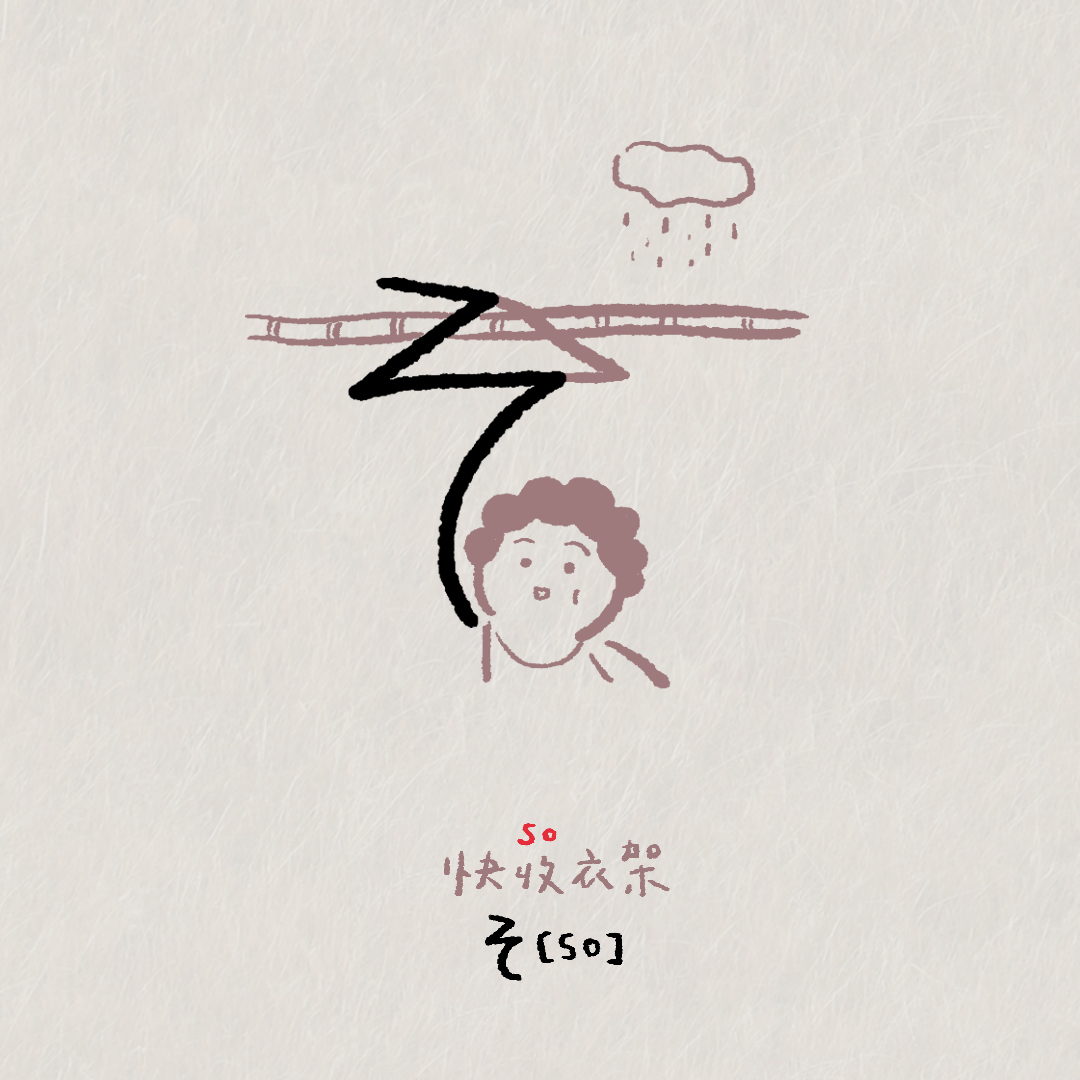 そ
so
快收衣架
そ [so]